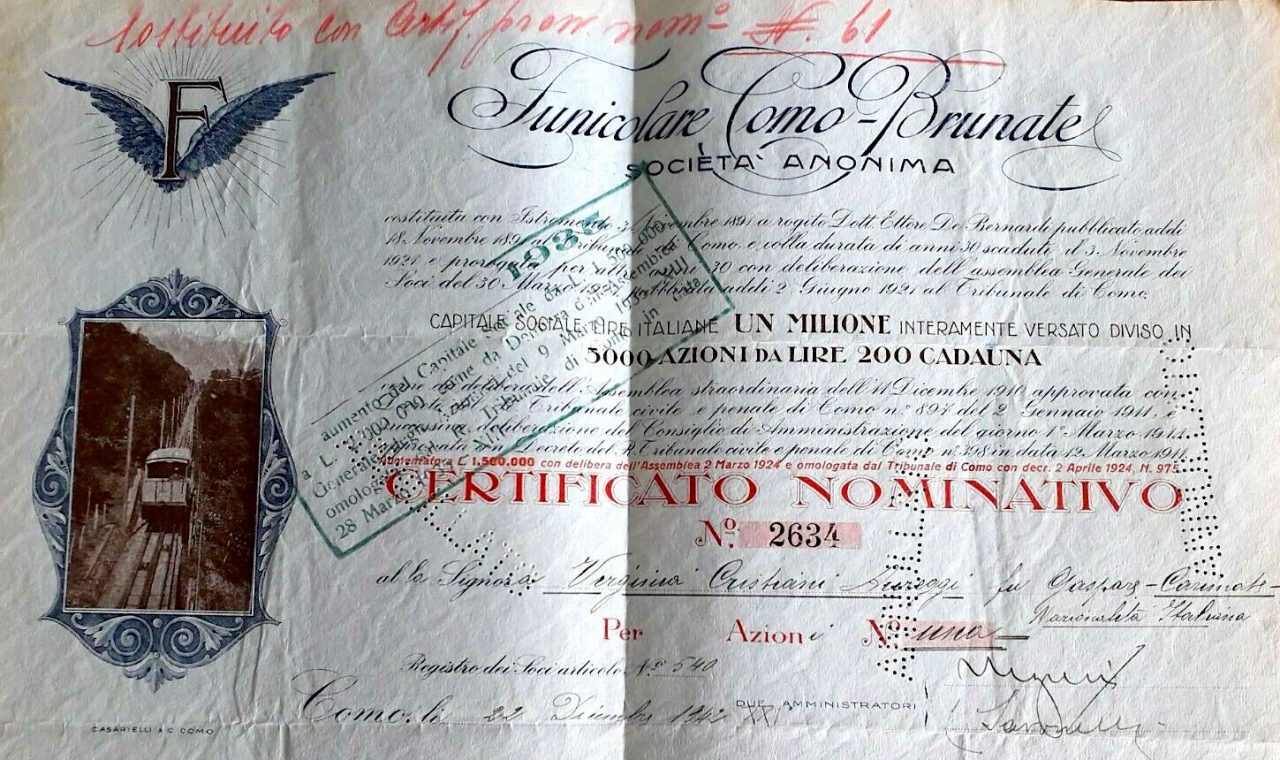 Sostituito con Certif. provv. nom° N. 61
F
Funicolare Como-Brunate
SOCIETÀ ANONIMA
costituita con Istromento 3 Novembre 1891 a rogito Dott. Ettore De Bernardi pubblicato addì
18 Novembre 1891 al Tribunale di Como, e colla durata di anni 30 scaduti il 3 Novembre
1921 e prorogata per altri anni 30 con deliberazione dell'assemblea Generale dei
Soci del 30 Marzo 1921 pubblicata addì 2 Giugno 1921 al Tribunale di Como.
CAPITALE SOCIALE LIRE ITALIANE UN MILIONE INTERAMENTE VERSATO DIVISO IN
5000 AZIONI DA LIRE 200 CADAUNA
come da delibera dell'Assemblea straordinaria dell'11 Dicembre 1910 approvata con
Tribunale civile e penale di Como n° 897 del 2 Gennaio 1911, e
deliberazione del Consiglio di Amministrazione del giorno 1° Marzo 1911
Decreto del R. Tribunale civile e penale di Como n° 198 in data 12 Marzo 1911.
Aumentato a L. 1.500.000 con delibera dell'Assemblea 2 Marzo 1924 e omologata dal Tribunale di Como con decr. 2 Aprile 1924, N. 975.
aumento del Capitale Sociale da L. 1.500.000
a L. 000 come da Delibera d'Assemblea
Generale degli Azionisti del 9 Marzo
omologata Tribunale di Como in data
28 Marzo
CERTIFICATO NOMINATIVO
N.º 2634
al la Signora Verginia Cristiani fu Gaspare - Carimati
Nazionalità Italiana
Per Azioni N.º una
Registro dei Soci articolo N.º 540
Como, li 22 Dicembre 1942 XXI
DUE AMMINISTRATORI
CASARTELLI & C COMO